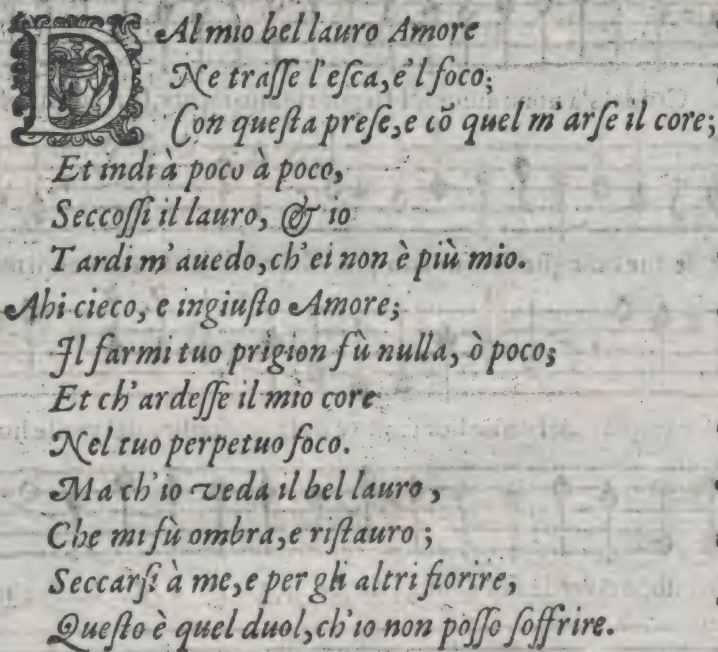 DAl mio bel lauro Amore
Ne traſſe l'eſca, e'l foco;
Con queſta preſe, e cõ quel m'arſe il core;
Et indi à poco à poco,
Seccoſſi il lauro, & io
Tardi m'auedo, ch'ei non è più mio.
Ahi cieco, e ingiuſto Amore;
Il farmi tuo prigion fù nulla, ò poco;
Et ch'ardeſſe il mio core
Nel tuo perpetuo foco.
Ma ch'io veda il bel lauro,
Che mi fù ombra, e riſtauro;
Seccarſi à me, e per gli altri fiorire,
Queſto è quel duol, ch'io non poſſo ſoffrire.